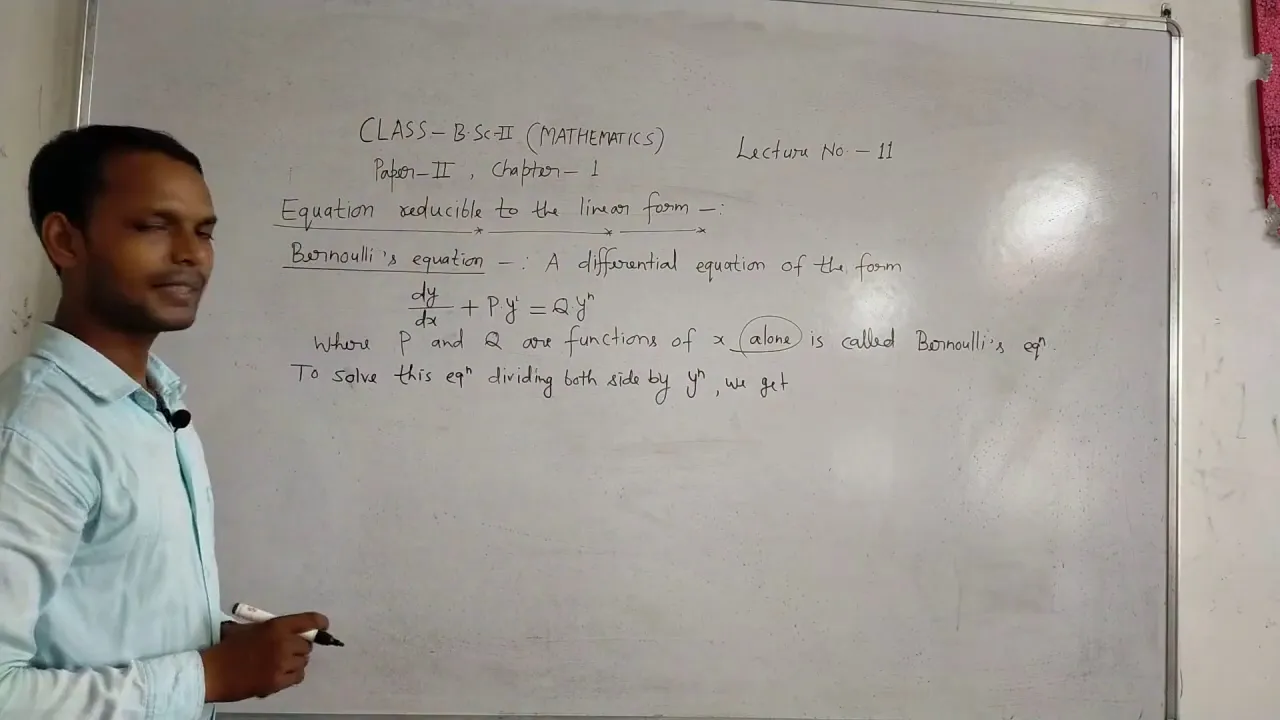 CLASS – B.Sc-II (MATHEMATICS)
Lecture No. – 11
Paper-II , Chapter – 1
Equation reducible to the linear form –:
Bernoulli's equation –: A differential equation of the form
dy/dx + P y¹ = Q yⁿ
where P and Q are functions of x alone is called Bernoulli's eqⁿ.
To solve this eqⁿ dividing both side by yⁿ, we get